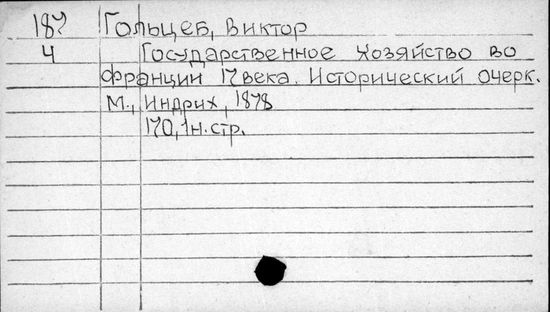 187 Гольцев, Виктор
4 Государственное хозяйство во
Франции 17 века. Исторический очерк.
М., Индрих, 1878
170, 1н. стр.